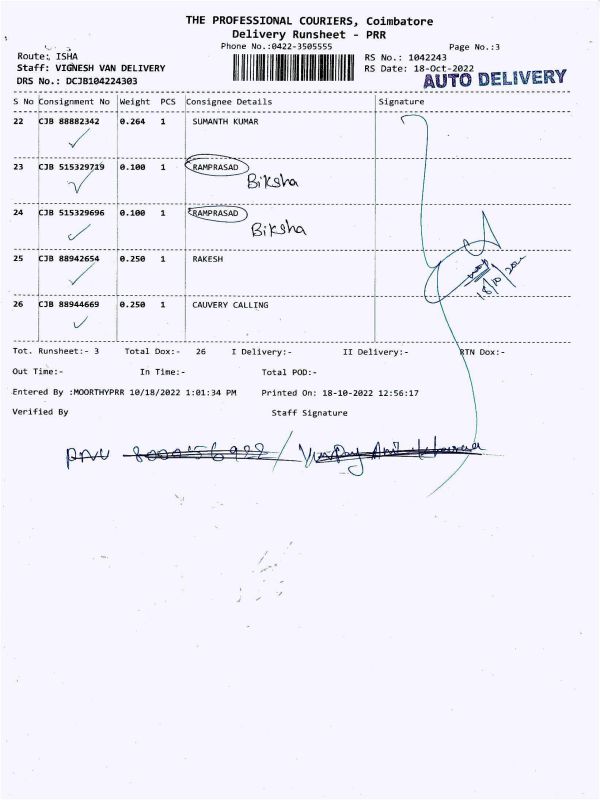 THE PROFESSIONAL COURIERS, Coimbatore
Delivery Runsheet - PRR
Phone No.:0422-3505555 Page No.:3
Route: ISHA RS No.: 1042243
Staff: VIGNESH VAN DELIVERY RS Date: 18-Oct-2022
DRS No.: DCJB104224303 AUTO DELIVERY
S No Consignment No Weight PCS Consignee Details Signature
22 CJB 88882342 0.264 1 SUMANTH KUMAR
23 CJB 515329719 0.100 1 RAMPRASAD
Biksha
24 CJB 515329696 0.100 1 RAMPRASAD
Biksha
25 CJB 88942654 0.250 1 RAKESH
18/10/
26 CJB 88944669 0.250 1 CAUVERY CALLING
Tot. Runsheet:- 3 Total Dox:- 26 I Delivery:- II Delivery:- RTN Dox:-
Out Time:- In Time:- Total POD:-
Entered By :MOORTHYPRR 10/18/2022 1:01:34 PM Printed On: 18-10-2022 12:56:17
Verified By Staff Signature